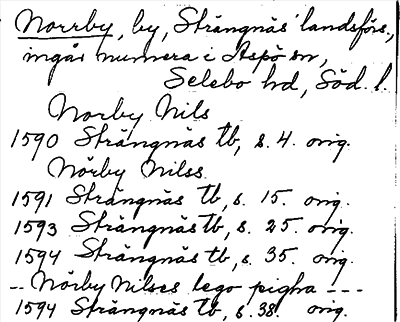 Norrby, by, Strängnäs landsförs.,
ingår numera i Aspö sn,
Selebo hd, Söd. l.
Norby Nils
1590 Strängnäs tb, s. 4. orig.
Nörby Nilss.
1591 Strängnäs tb, s. 15. orig.
1593 Strängnäs tb, s. 25. orig.
1594 Strängnäs tb, s. 35. orig.
-- Nörby Nilses lego pigha ---
1594 Strängnäs tb, s. 38. orig.